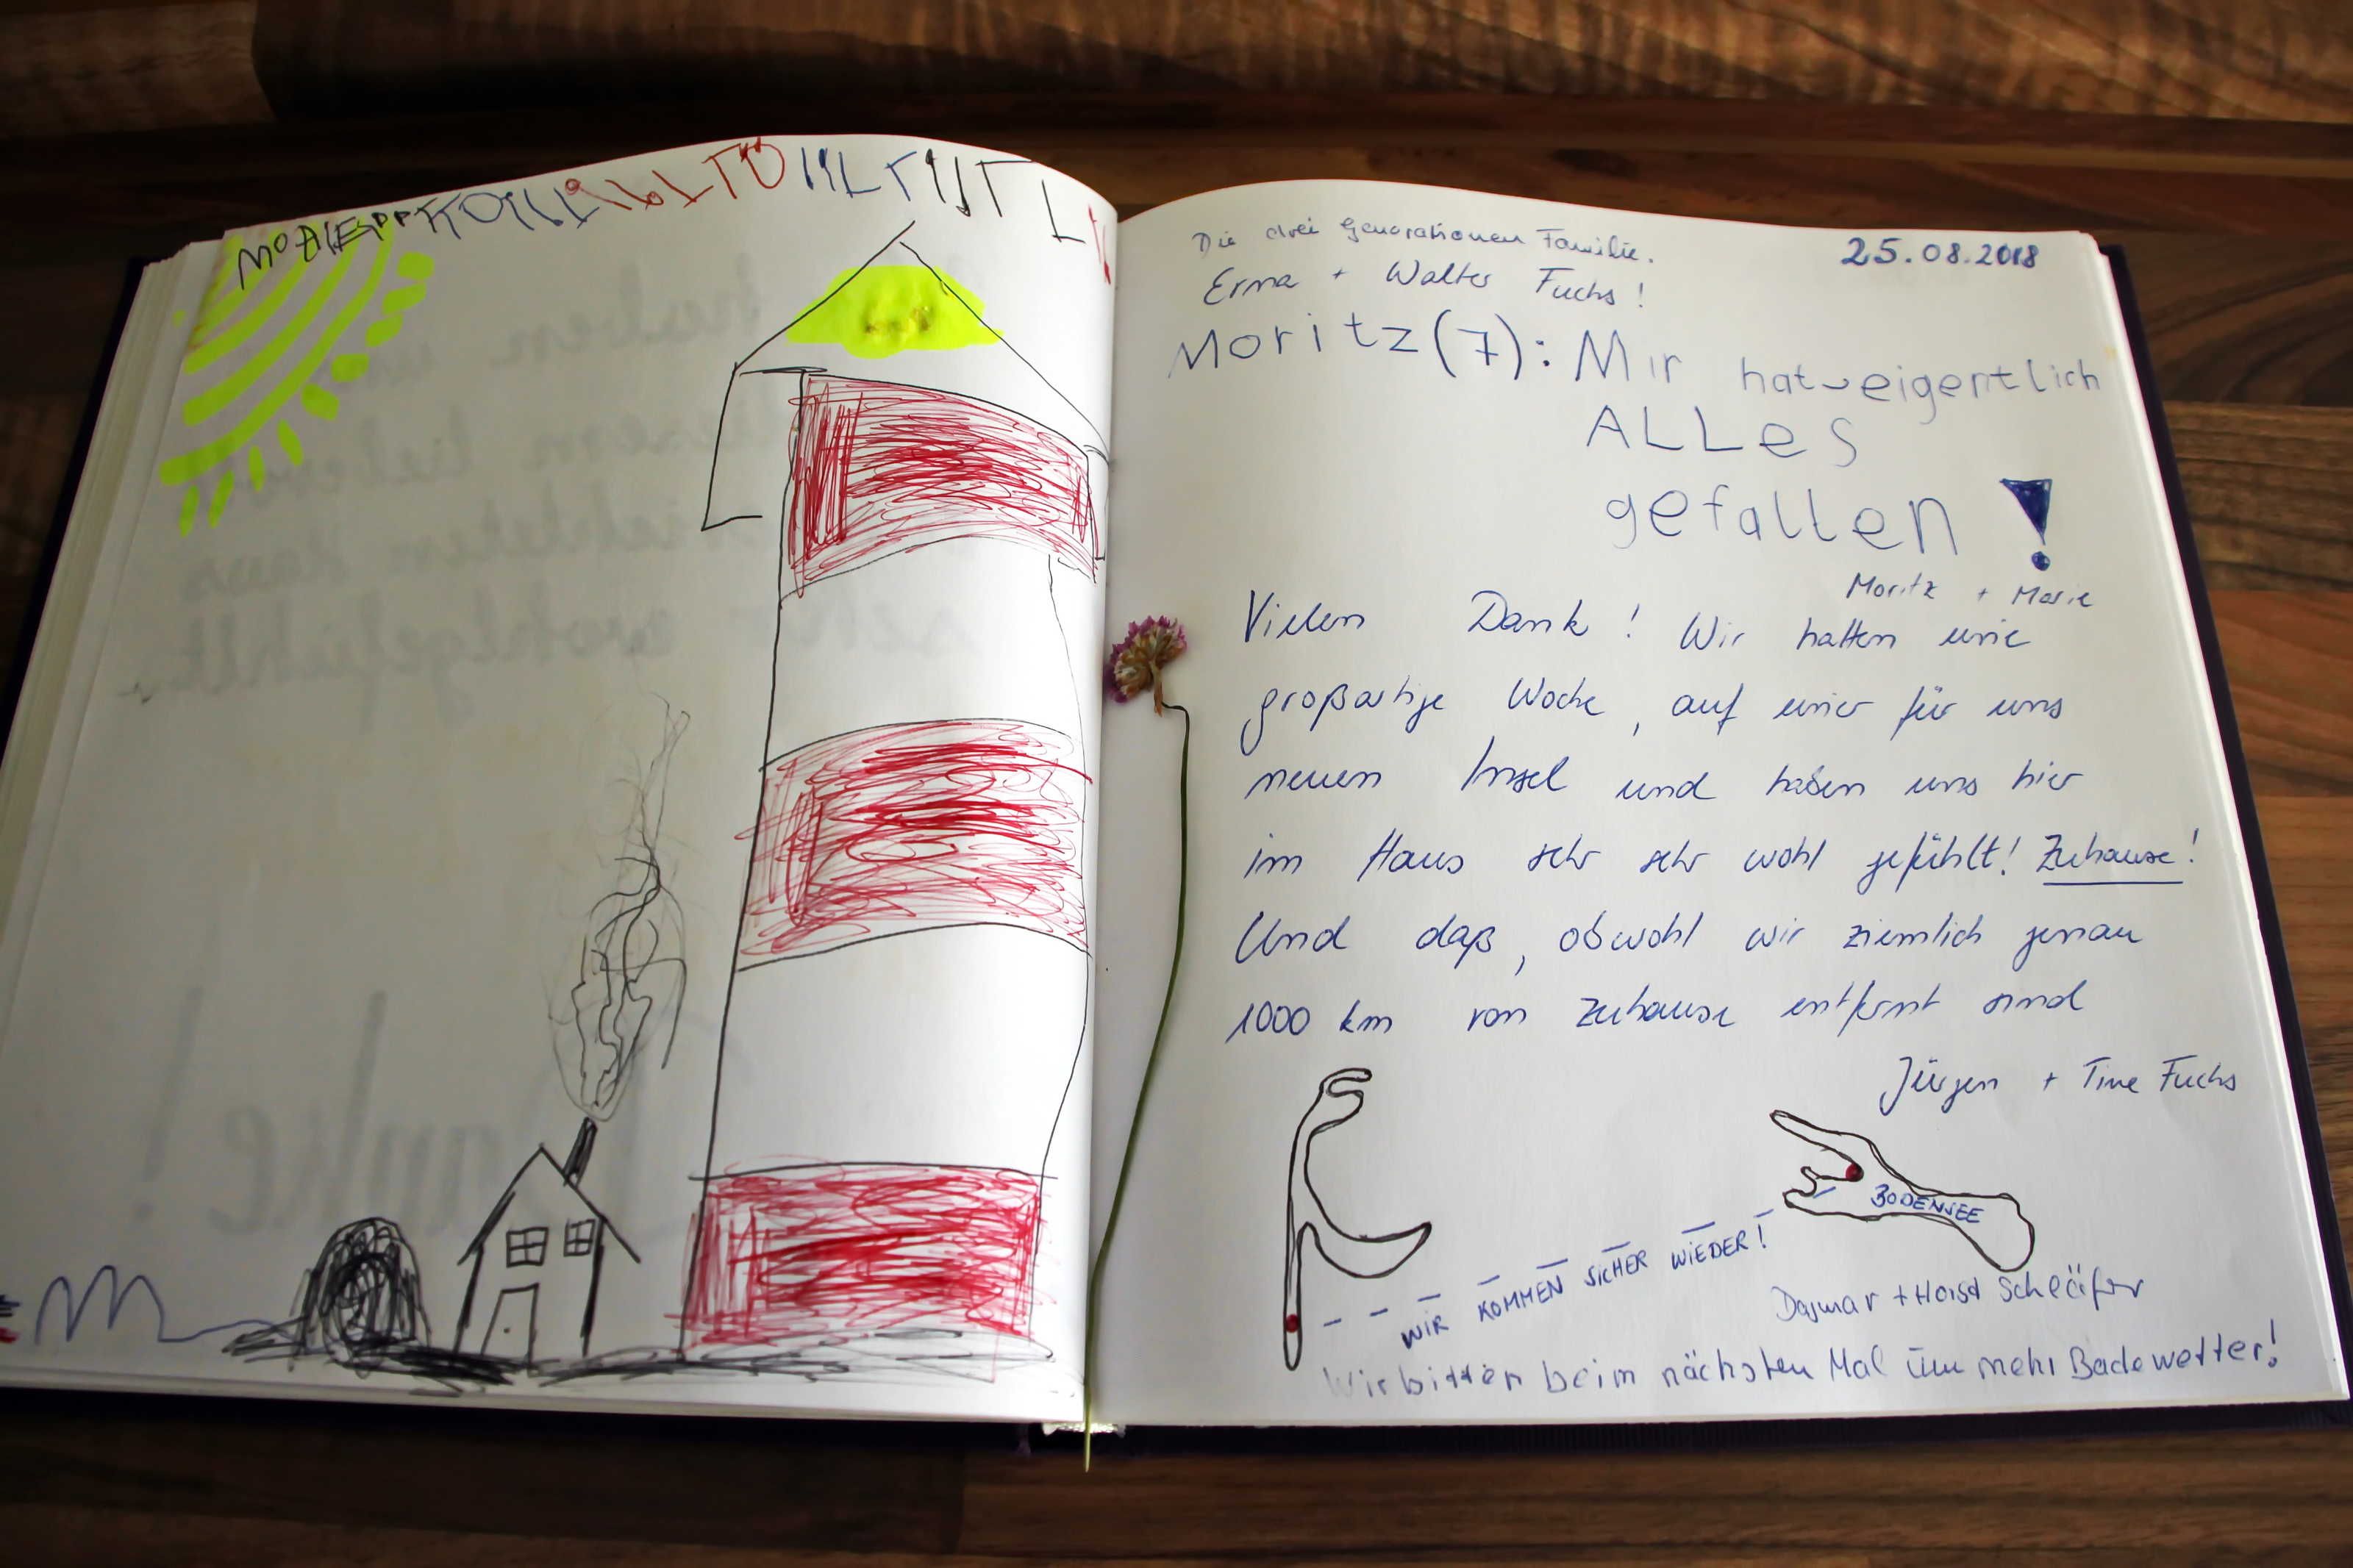 Die drei Generationen Familie.
25.08.2018
Erma + Walter Fuchs!
Moritz(7): Mir hat eigentlich
ALLes
gefallen !
Moritz + Marie
Vielen Dank! Wir hatten eine
großartige Woche, auf einer für uns
neuen Insel und haben uns hier
im Haus sehr sehr wohl gefühlt! Zuhause!
Und daß, obwohl wir ziemlich genau
1000 km von Zuhause entfernt sind
Jürgen + Tine Fuchs
BODENSEE
WIR KOMMEN SICHER WIEDER!
Dagmar + Horst Schläfer
Wir bitten beim nächsten Mal um mehr Badewetter!